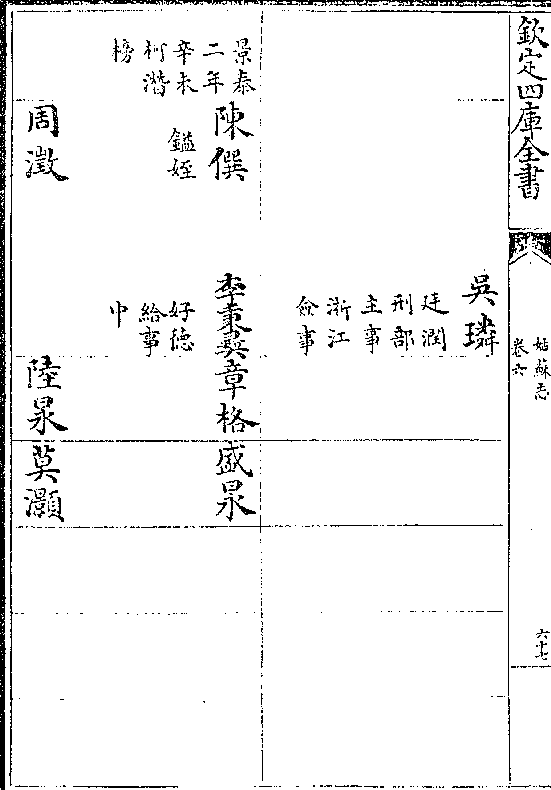 欽定四庫全書
姑蘇志
卷六
六十七
吳璘
廷潤
刑部
主事
浙江
僉事
景泰
二年
辛未
柯潛
榜
陳僎
鎰姪
李秉彞
好德
給事
中
章格
盛㫤
周澂
陸㫤
莫灝